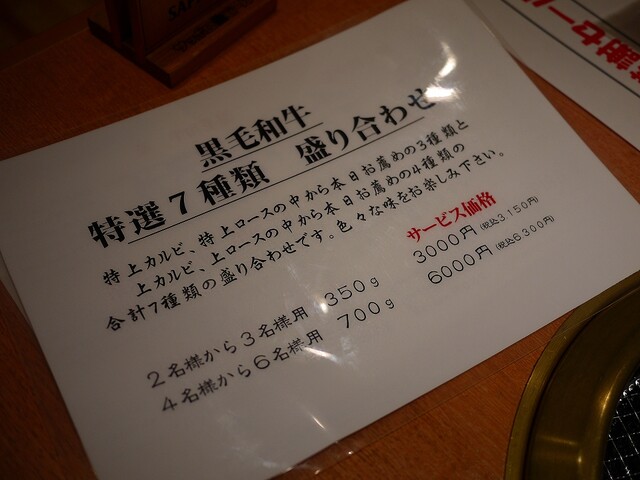 黒毛和牛
特選7種類 盛り合わせ
特上カルビ、特上ロースの中から本日お薦めの3種類と
上カルビ、上ロースの中から本日お薦めの4種類の
合計7種類の盛り合わせです。色々な味をお楽しみ下さい。
サービス価格
2名様から3名様用 350g 3000円(税込3,150円)
4名様から6名様用 700g 6000円(税込6,300円)
謝セール